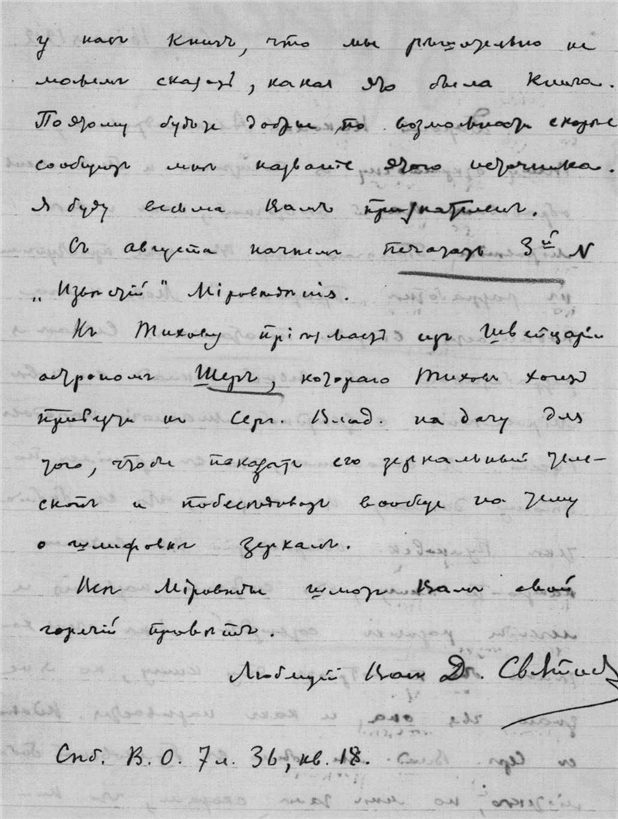 у насъ книгъ, что мы рѣшительно не
можемъ сказать, какая это была книга.
Поэтому будьте добры по возможности скорѣе
сообщить мнѣ названіе этого источника.
Я буду весьма Вамъ признателенъ.
Съ августа начнемъ печатать 3й N
„Извѣстій" Міровѣдѣнія.
Къ Тихову пріѣзжаетъ изъ Швейцаріи
астрономъ Шеръ, котораго Тиховъ хочетъ
привезти къ Серг. Влад. на дачу для
того, чтобы показать его зеркальный теле-
скопъ и побесѣдовать вообще на тему
о шлифовкѣ зеркалъ.
Всѣ Міровѣды шлютъ Вамъ свой
горячій привѣтъ.
Любящій Васъ Д. Святскій
Спб. В. О. 7 л. 36, кв. 18.